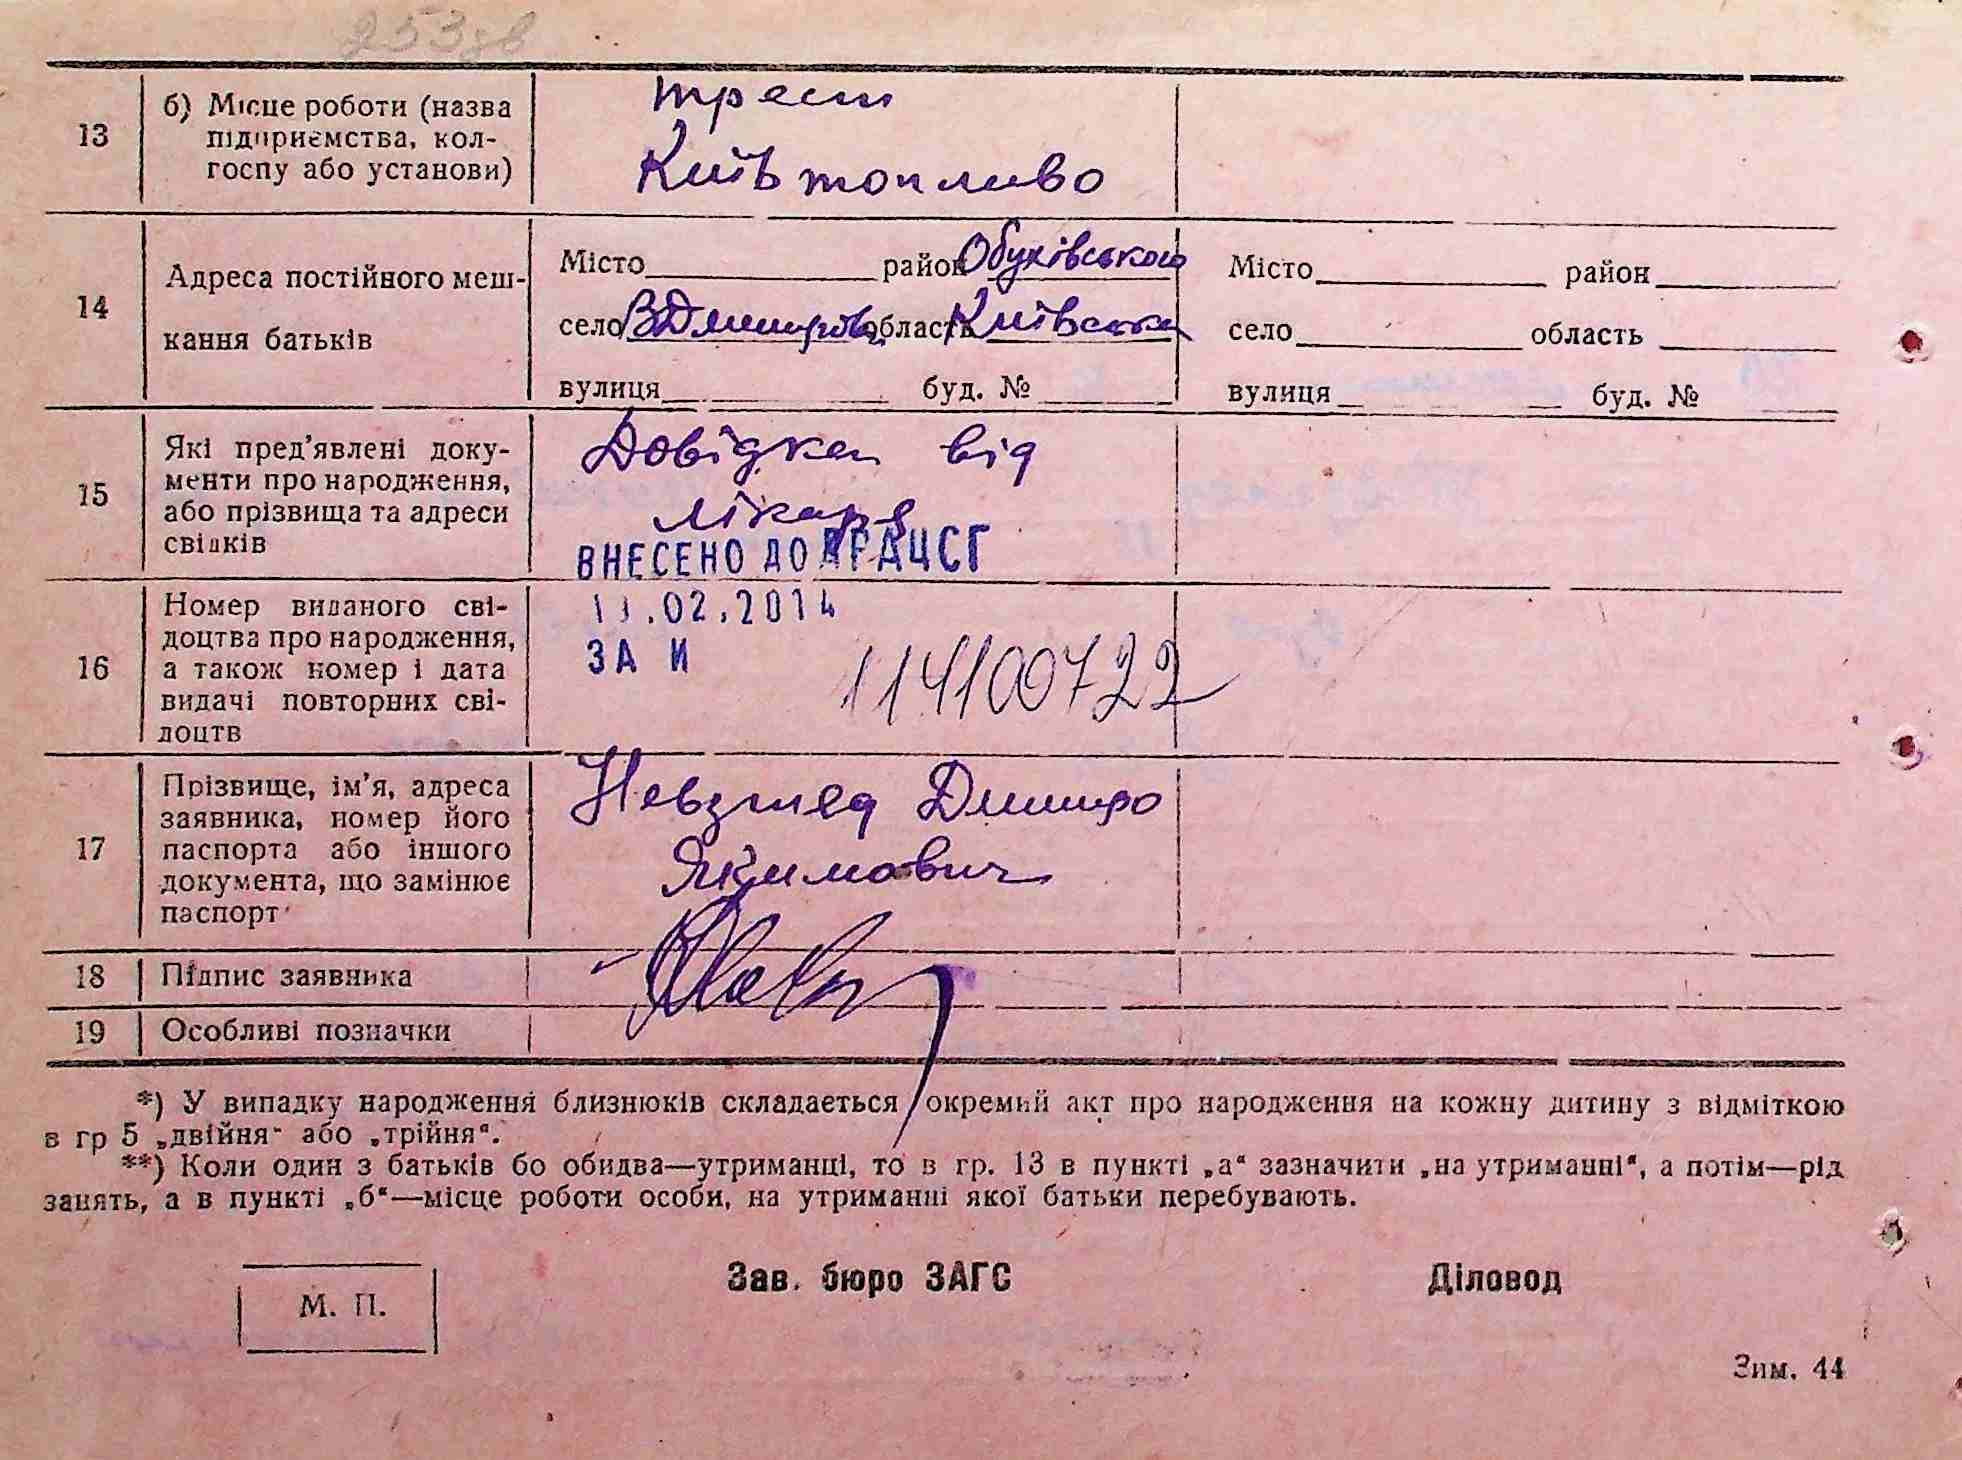 253зв
13
б) Місце роботи (назва
підприємства, кол-
госпу або установи)
трест
Київтопливо
14
Адреса постійного меш-
кання батьків
Місто район Обухівського
село ВДмитрови область Київська
вулиця буд. №
Місто район
село область
вулиця буд. №
15
Які пред’явлені доку-
менти про народження,
або прізвища та адреси
свідків
Довідка від
лікаря
ВНЕСЕНО ДО ДРАЦСГ
16
Номер виданого сві-
доцтва про народження,
а також номер і дата
видачі повторних сві-
доцтв
11.02.2014
ЗА И 114100722
17
Прізвище, ім’я, адреса
заявника, номер його
паспорта або іншого
документа, що замінює
паспорт
Невзгляд Дмитро
Якимович
18
Підпис заявника
19
Особливі позначки
*) У випадку народження близнюків складається окремий акт про народження на кожну дитину з відміткою
в гр 5 „двійня“ або „трійня“.
**) Коли один з батьків бо обидва—утриманці, то в гр. 13 в пункті „а“ зазначити „на утриманні“, а потім—рід
занять, а в пункті „б“—місце роботи особи, на утриманні якої батьки перебувають.
М. П.
Зав. бюро ЗАГС
Діловод
Зим. 44